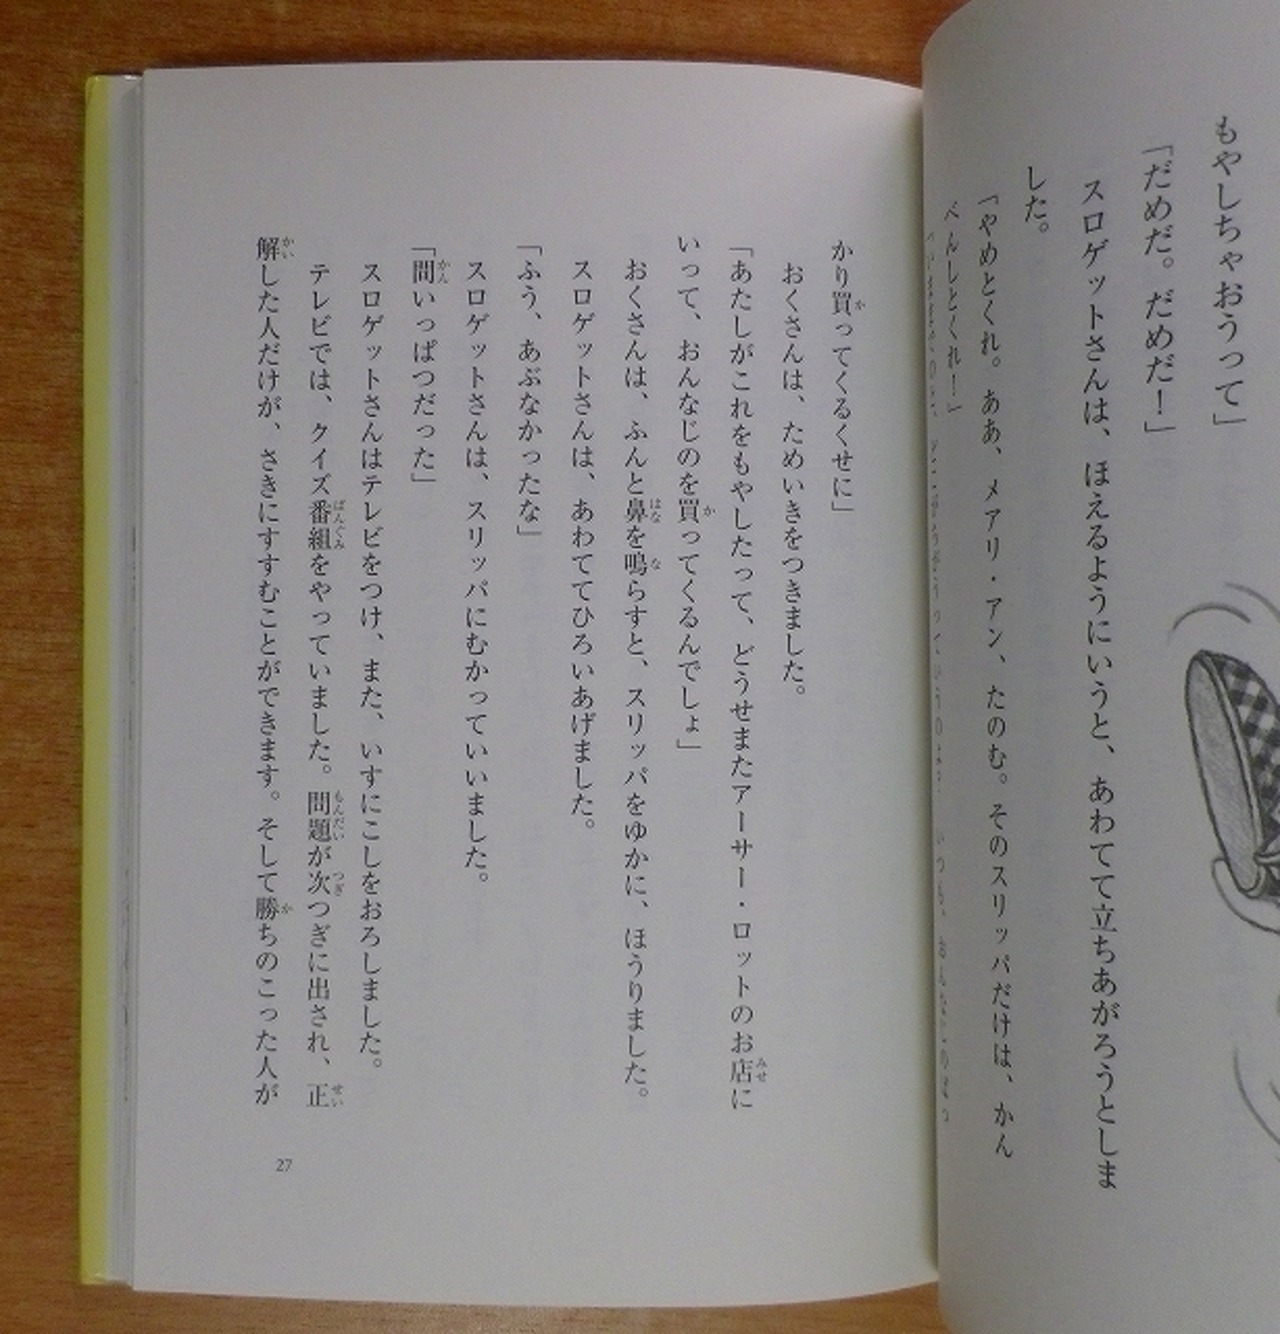 もやしちゃおうって」
「だめだ。だめだ！」
スロゲットさんは、ほえるようにいうと、あわてて立ちあがろうとしま
した。
「やめとくれ。ああ、メアリ・アン、たのむ。そのスリッパだけは、かん
べんしとくれ！」
かり買ってくるくせに」
おくさんは、ためいきをつきました。
「あたしがこれをもやしたって、どうせまたアーサー・ロットのお店に
いって、おんなじのを買ってくるんでしょ」
おくさんは、ふんと鼻を鳴らすと、スリッパをゆかに、ほうりました。
スロゲットさんは、あわててひろいあげました。
「ふう、あぶなかったな」
スロゲットさんは、スリッパにむかっていいました。
「間いっぱつだった」
スロゲットさんはテレビをつけ、また、いすにこしをおろしました。
テレビでは、クイズ番組をやっていました。問題が次つぎに出され、正
解した人だけが、さきにすすむことができます。そして勝ちのこった人が
27